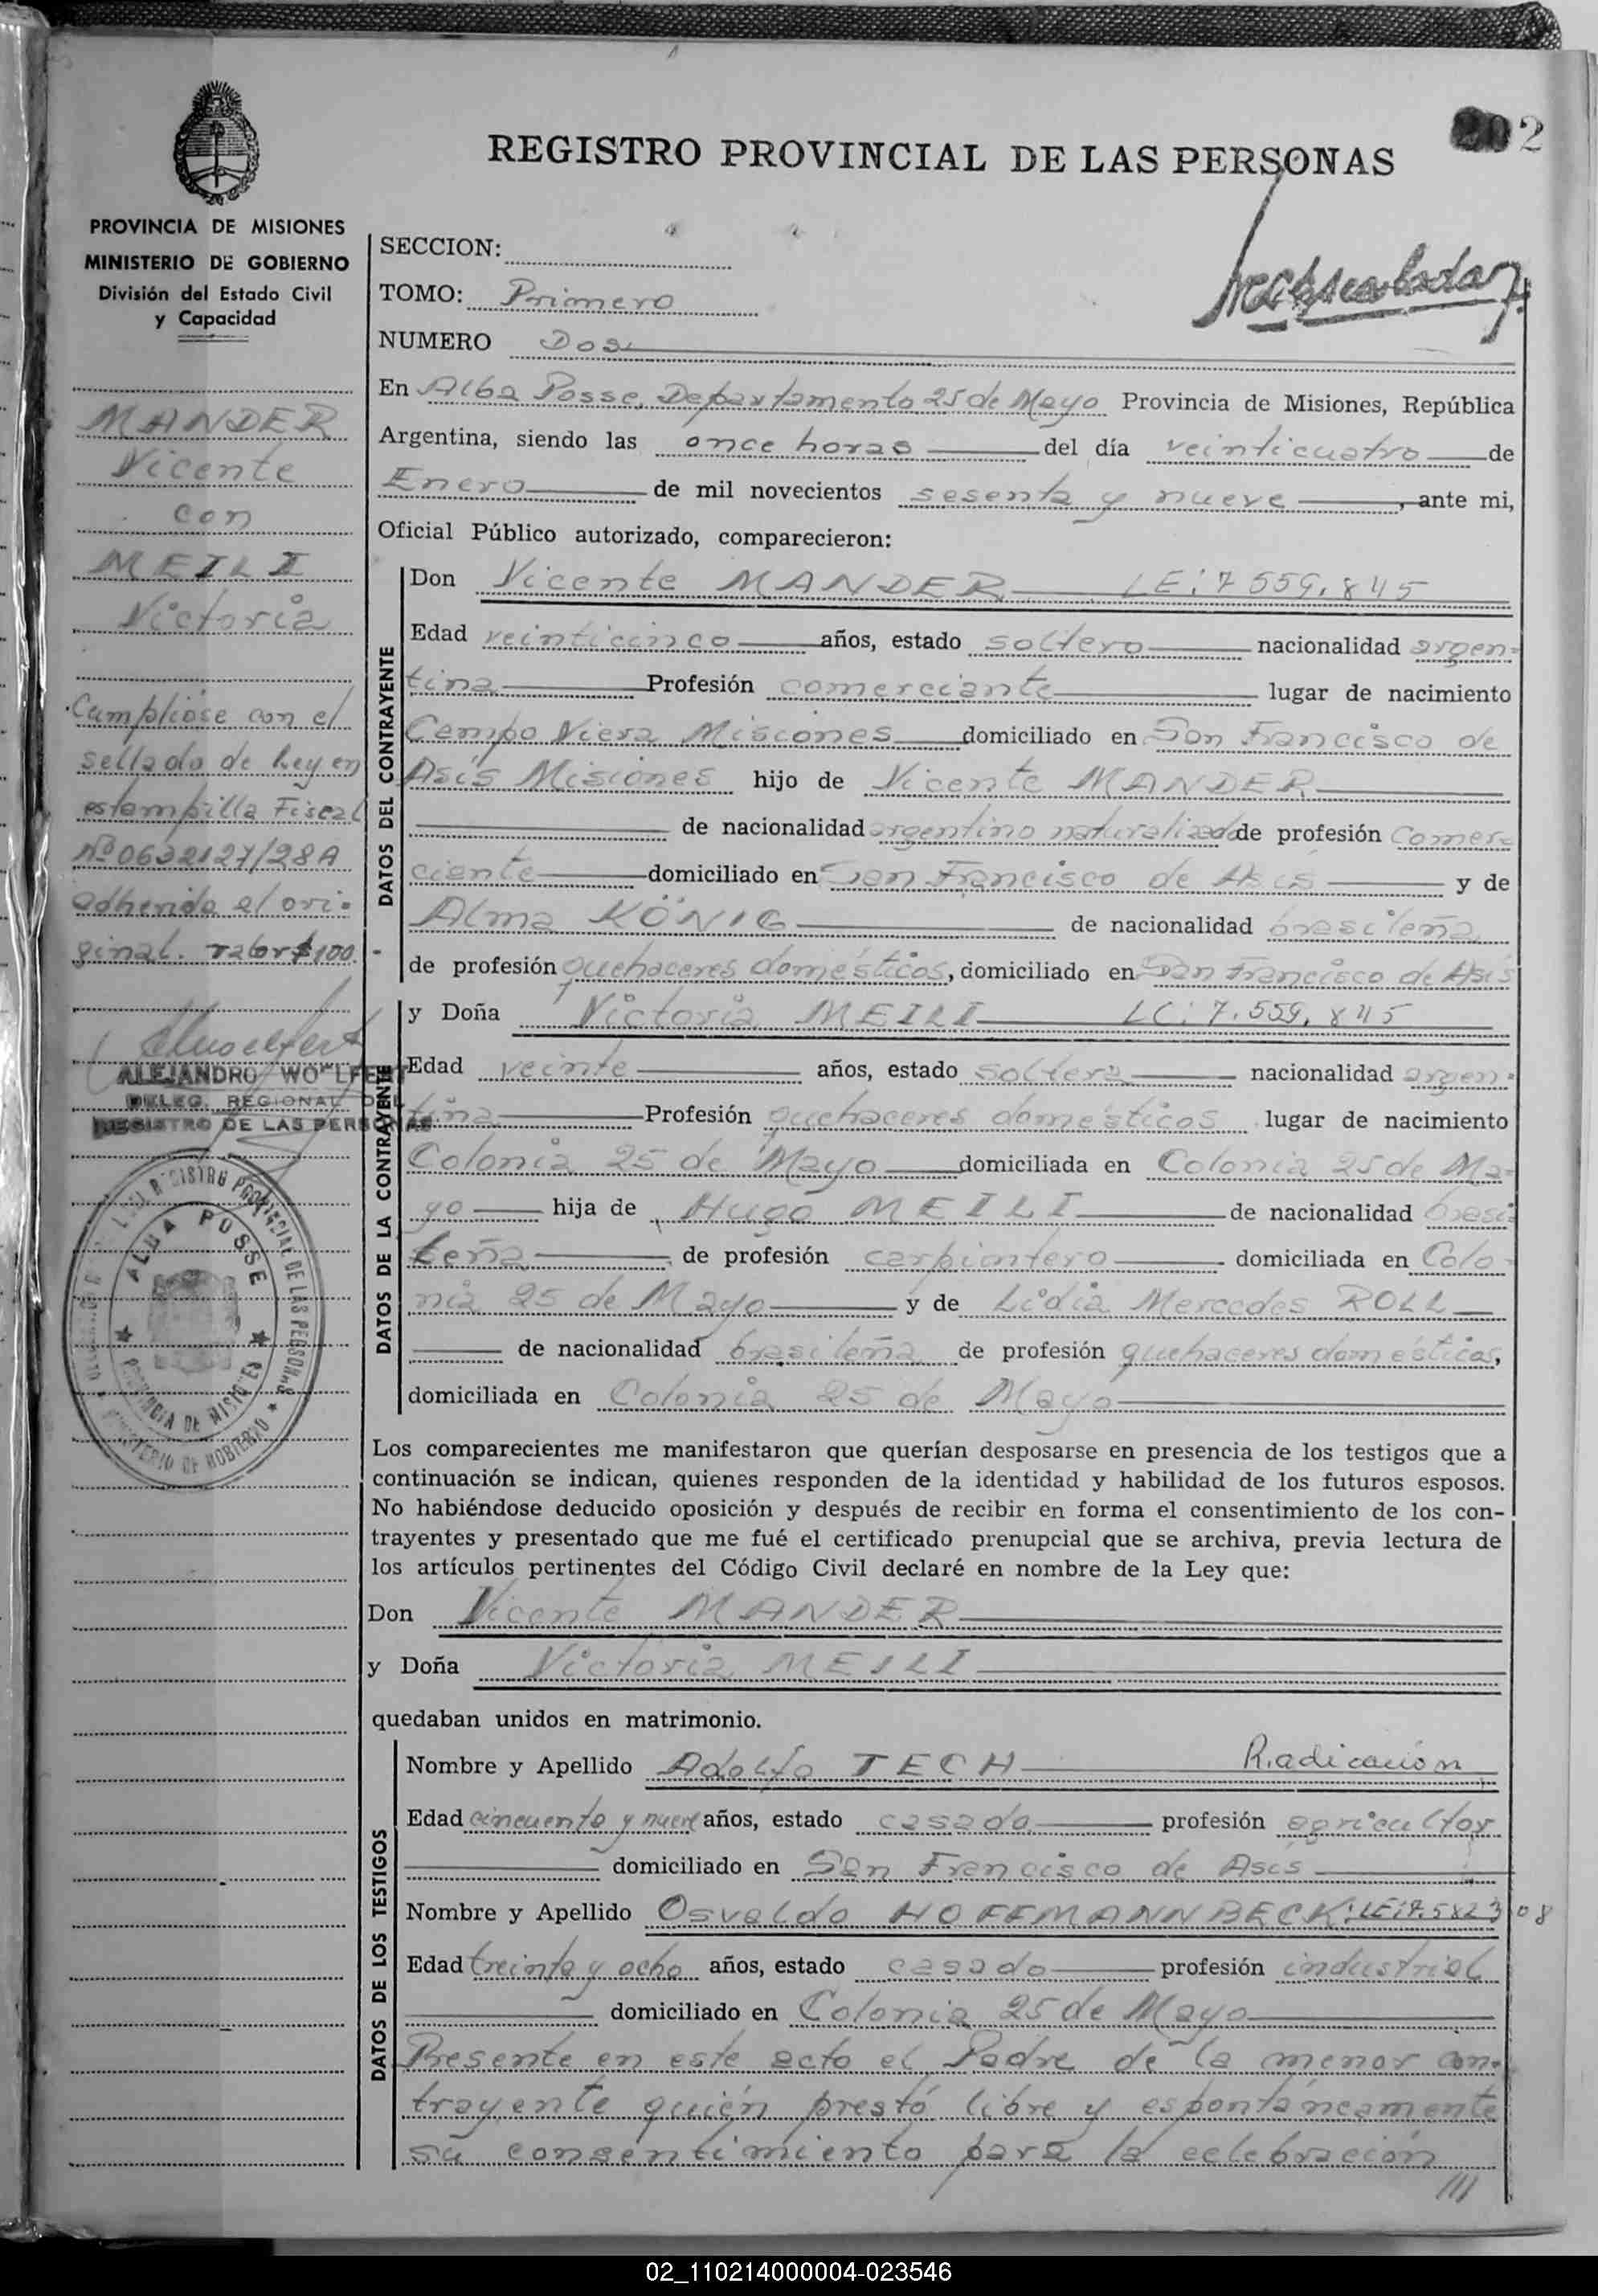 2
REGISTRO PROVINCIAL DE LAS PERSONAS
PROVINCIA DE MISIONES
MINISTERIO DE GOBIERNO
División del Estado Civil
y Capacidad
MANDER
Vicente
con
MEILI
Victoria
Cumplióse con el
sellado de Ley en
estampilla Fiscal
Nº 0632127/28A
adherida al ori-
ginal. valor $100.-
ALEJANDRO WOLFERT
DELEG. REGIONAL DEL
REGISTRO DE LAS PERSONAS
REGISTRO PROVINCIAL DE LAS PERSONAS
ALBA POSSE
PROVINCIA DE MISIONES
MINISTERIO DE GOBIERNO
SECCION:
TOMO: Primero
NUMERO Dos
En Alba Posse, Departamento 25 de Mayo Provincia de Misiones, República
Argentina, siendo las once horas del día veinticuatro de
Enero de mil novecientos sesenta y nueve, ante mi,
Oficial Público autorizado, comparecieron:
DATOS DEL CONTRAYENTE
Don Vicente MANDER LE: 7.559.845
Edad veinticinco años, estado soltero nacionalidad argen-
tina Profesión comerciante lugar de nacimiento
Campo Viera Misiones domiciliado en San Francisco de
Asís Misiones hijo de Vicente MANDER
de nacionalidad argentino naturalizado de profesión Comer-
ciante domiciliado en San Francisco de Asís y de
Alma KÖNIG de nacionalidad brasileña
de profesión quehaceres domésticos, domiciliado en San Francisco de Asís
DATOS DE LA CONTRAYENTE
y Doña Victoria MEILI LC: 7.559.845
Edad veinte años, estado soltera nacionalidad argen-
tina Profesión quehaceres domésticos lugar de nacimiento
Colonia 25 de Mayo domiciliada en Colonia 25 de Ma-
yo hija de Hugo MEILI de nacionalidad brasi-
leña de profesión carpintero domiciliada en Colo-
nia 25 de Mayo y de Lidia Mercedes ROLL
de nacionalidad brasileña de profesión quehaceres domésticos,
domiciliada en Colonia 25 de Mayo
Los comparecientes me manifestaron que querían desposarse en presencia de los testigos que a
continuación se indican, quienes responden de la identidad y habilidad de los futuros esposos.
No habiéndose deducido oposición y después de recibir en forma el consentimiento de los con-
trayentes y presentado que me fué el certificado prenupcial que se archiva, previa lectura de
los artículos pertinentes del Código Civil declaré en nombre de la Ley que:
Don Vicente MANDER
y Doña Victoria MEILI
quedaban unidos en matrimonio.
DATOS DE LOS TESTIGOS
Nombre y Apellido Adolfo TECH Radicación
Edad cincuenta y nueve años, estado casado profesión agricultor
domiciliado en San Francisco de Asís
Nombre y Apellido Osvaldo HOFFMANN BECK: LE: 7.582308
Edad treinta y ocho años, estado casado profesión industrial
domiciliado en Colonia 25 de Mayo
Presente en este acto el Padre de la menor con-
trayente quién prestó libre y espontáneamente
su consentimiento para la celebración
///
02_110214000004-023546